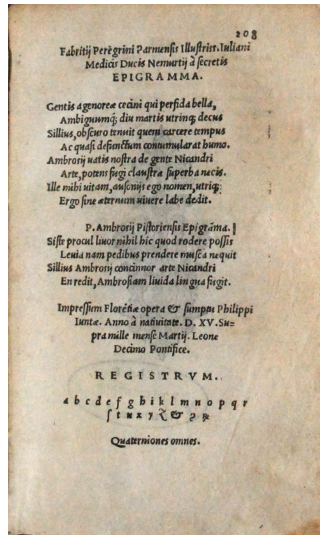 208
Fabritij Peregrini Parmensis Illustriss. Iuliani
Medicis Ducis Nemursij à secretis
EPIGRAMMA.
Gentis agenoreæ cecini qui perfida bella,
Ambiguumq; diu martis utrinq; decus
Sillius, obscuro tenuit quem carcere tempus
Ac quasi defunctum contumularat humo.
Ambrosij uatis nostra de gente Nicandri
Arte, potens fugi claustra superba necis.
Ille mihi uitam, ausonijs ego nomen, utriq;
Ergo sine æternum uiuere labe dedit.
P. Ambrosij Pistoriensis Epigrāma.
Siste procul liuor nihil hic quod rodere possis
Leuia nam pedibus prendere musca nequit
Sillius Ambrosij concinnor arte Nicandri
En redit, Ambrosiam liuida lingua fugit.
Impressum Florētiæ opera & sumptu Philippi
Iuntæ. Anno à natiuitate. D. XV. Su-
pra mille mense Martij. Leone
Decimo Pontifice.
REGISTRVM.
a b c d e f g h i k l m n o p q r
ſ t u x y z &
Quaterniones omnes.